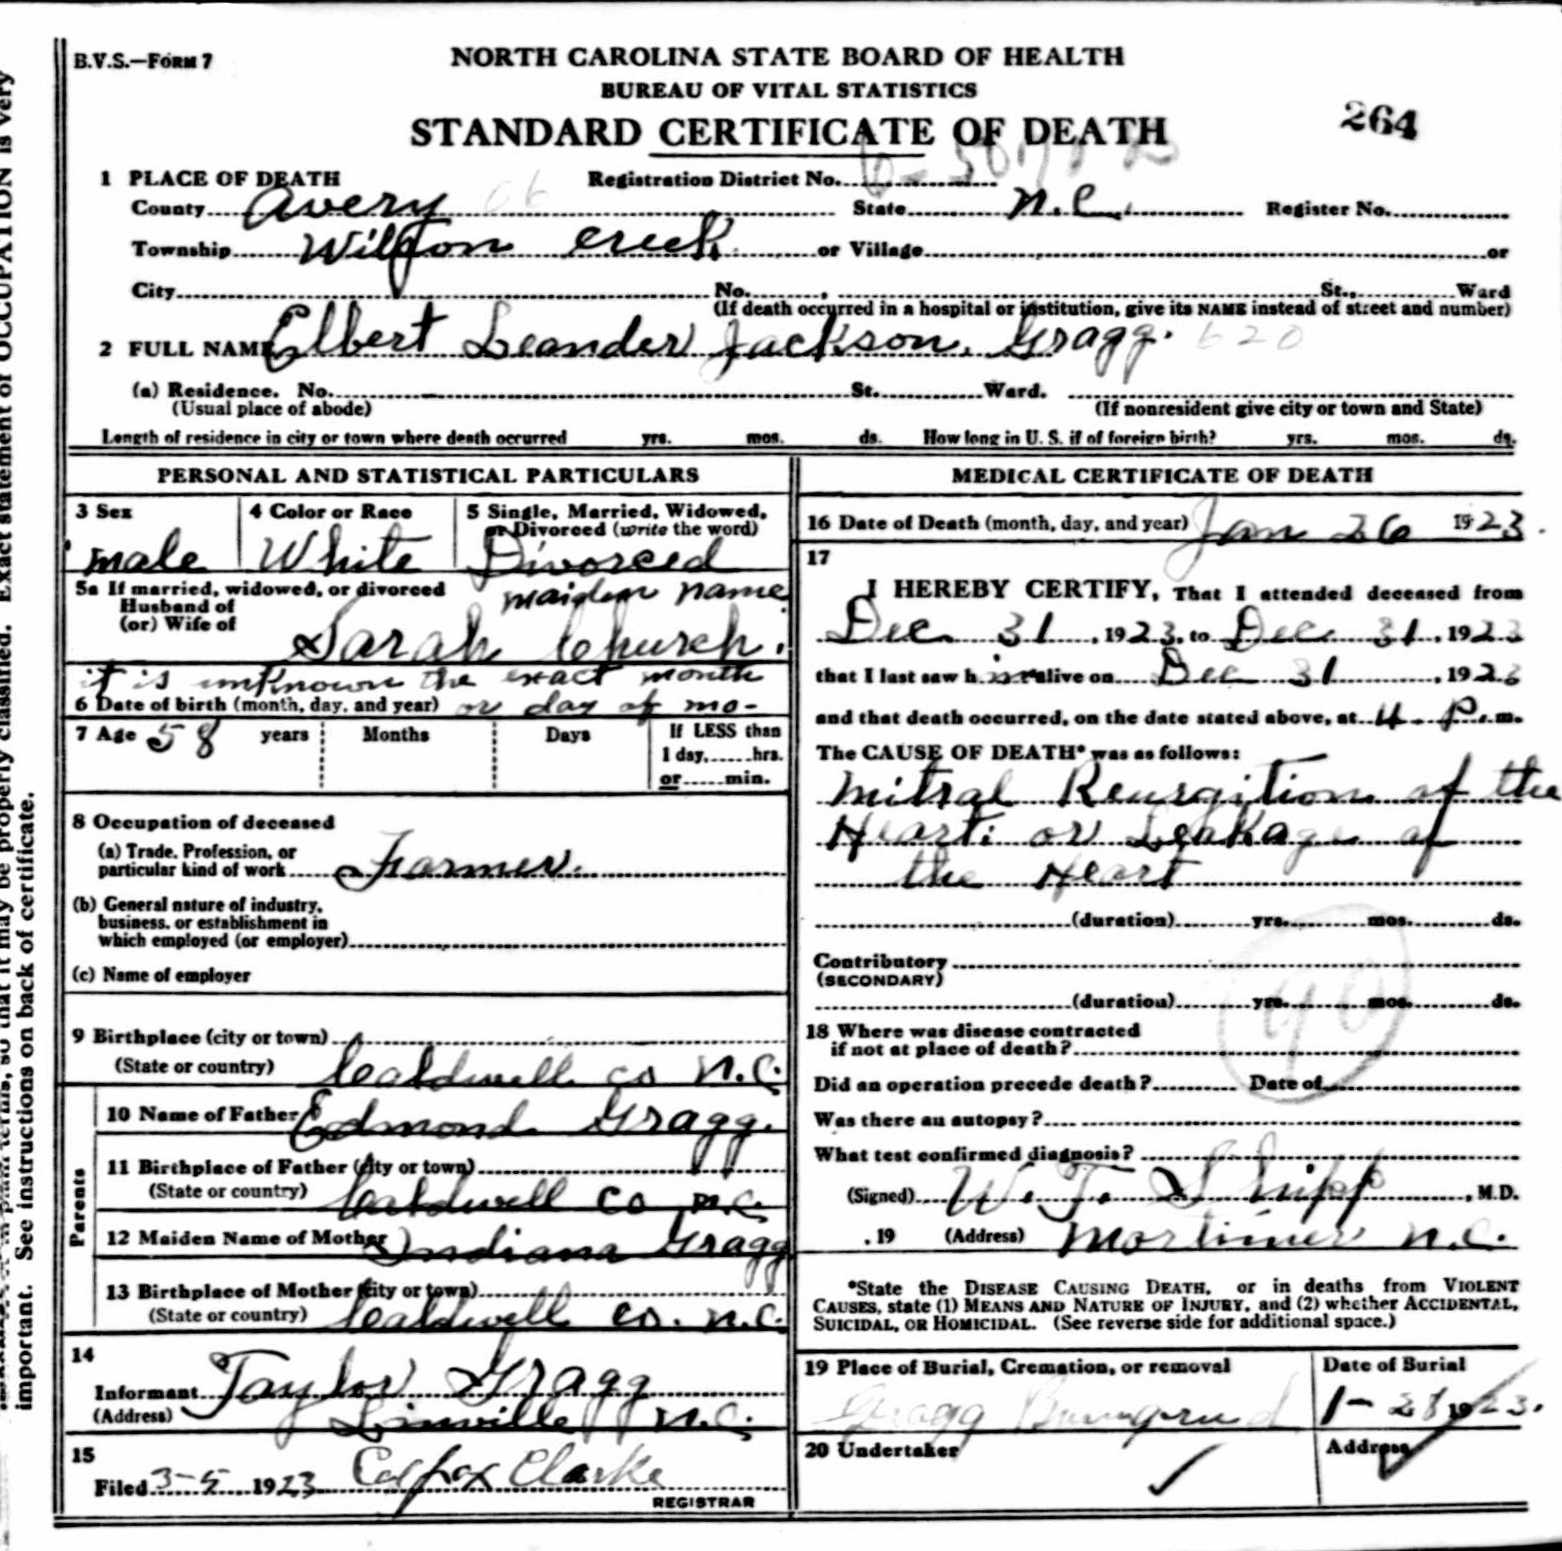 B.V.S.—FORM 7
NORTH CAROLINA STATE BOARD OF HEALTH
BUREAU OF VITAL STATISTICS
STANDARD CERTIFICATE OF DEATH
264
1 PLACE OF DEATH
Registration District No.
County Avery State N.C. Register No.
Township Wilson Creek or Village or
City No. St., Ward
(If death occurred in a hospital or institution, give its NAME instead of street and number)
2 FULL NAME Elbert Leander Jackson. Gragg. 620
(a) Residence. No. St. Ward.
(Usual place of abode) (If nonresident give city or town and State)
Length of residence in city or town where death occurred yrs. mos. ds. How long in U. S. if of foreign birth? yrs. mos. ds.
PERSONAL AND STATISTICAL PARTICULARS
3 Sex 4 Color or Race 5 Single, Married, Widowed,
or Divorced (write the word)
male White Divorced
5a If married, widowed, or divorced
maiden name
Husband of
(or) Wife of
Sarah Church.
it is unknown the exact month
6 Date of birth (month, day, and year) or day of mo-
7 Age 58 years Months Days If LESS than
1 day, hrs.
or min.
8 Occupation of deceased
(a) Trade, Profession, or
particular kind of work Farmer.
(b) General nature of industry,
business, or establishment in
which employed (or employer)
(c) Name of employer
9 Birthplace (city or town)
(State or country) Caldwell co N.C.
Parents
10 Name of Father Edmond Gragg.
11 Birthplace of Father (city or town)
(State or country) Caldwell co n.c.
12 Maiden Name of Mother Indiana Gragg
13 Birthplace of Mother (city or town)
(State or country) Caldwell co. n.c.
14
Informant Taylor Gragg
(Address) Linville N.C.
15
Filed 3-5 1923 Colfax Clarke
REGISTRAR
MEDICAL CERTIFICATE OF DEATH
16 Date of Death (month, day, and year) Jan 26 1923.
17
I HEREBY CERTIFY, That I attended deceased from
Dec 31, 1923, to Dec 31, 1923
that I last saw h im alive on Dec 31, 1923
and that death occurred, on the date stated above, at 4 P. m.
The CAUSE OF DEATH* was as follows:
Mitral Reurgition of the
Heart: or Leakage of
the Heart
(duration) yrs. mos. ds.
Contributory
(SECONDARY)
(duration) yrs. mos. ds.
90
18 Where was disease contracted
if not at place of death?
Did an operation precede death? Date of
Was there an autopsy?
What test confirmed diagnosis?
(Signed) W. T. Shipp, M.D.
, 19 (Address) Mortimer N.C.
*State the DISEASE CAUSING DEATH, or in deaths from VIOLENT
CAUSES, state (1) MEANS AND NATURE OF INJURY, and (2) whether ACCIDENTAL,
SUICIDAL, OR HOMICIDAL. (See reverse side for additional space.)
19 Place of Burial, Cremation, or removal Date of Burial
Gragg 1- 1923.
20 Undertaker Address
OCCUPATION is very
important. See instructions on back of certificate.
so that it may be properly classified. Exact statement of